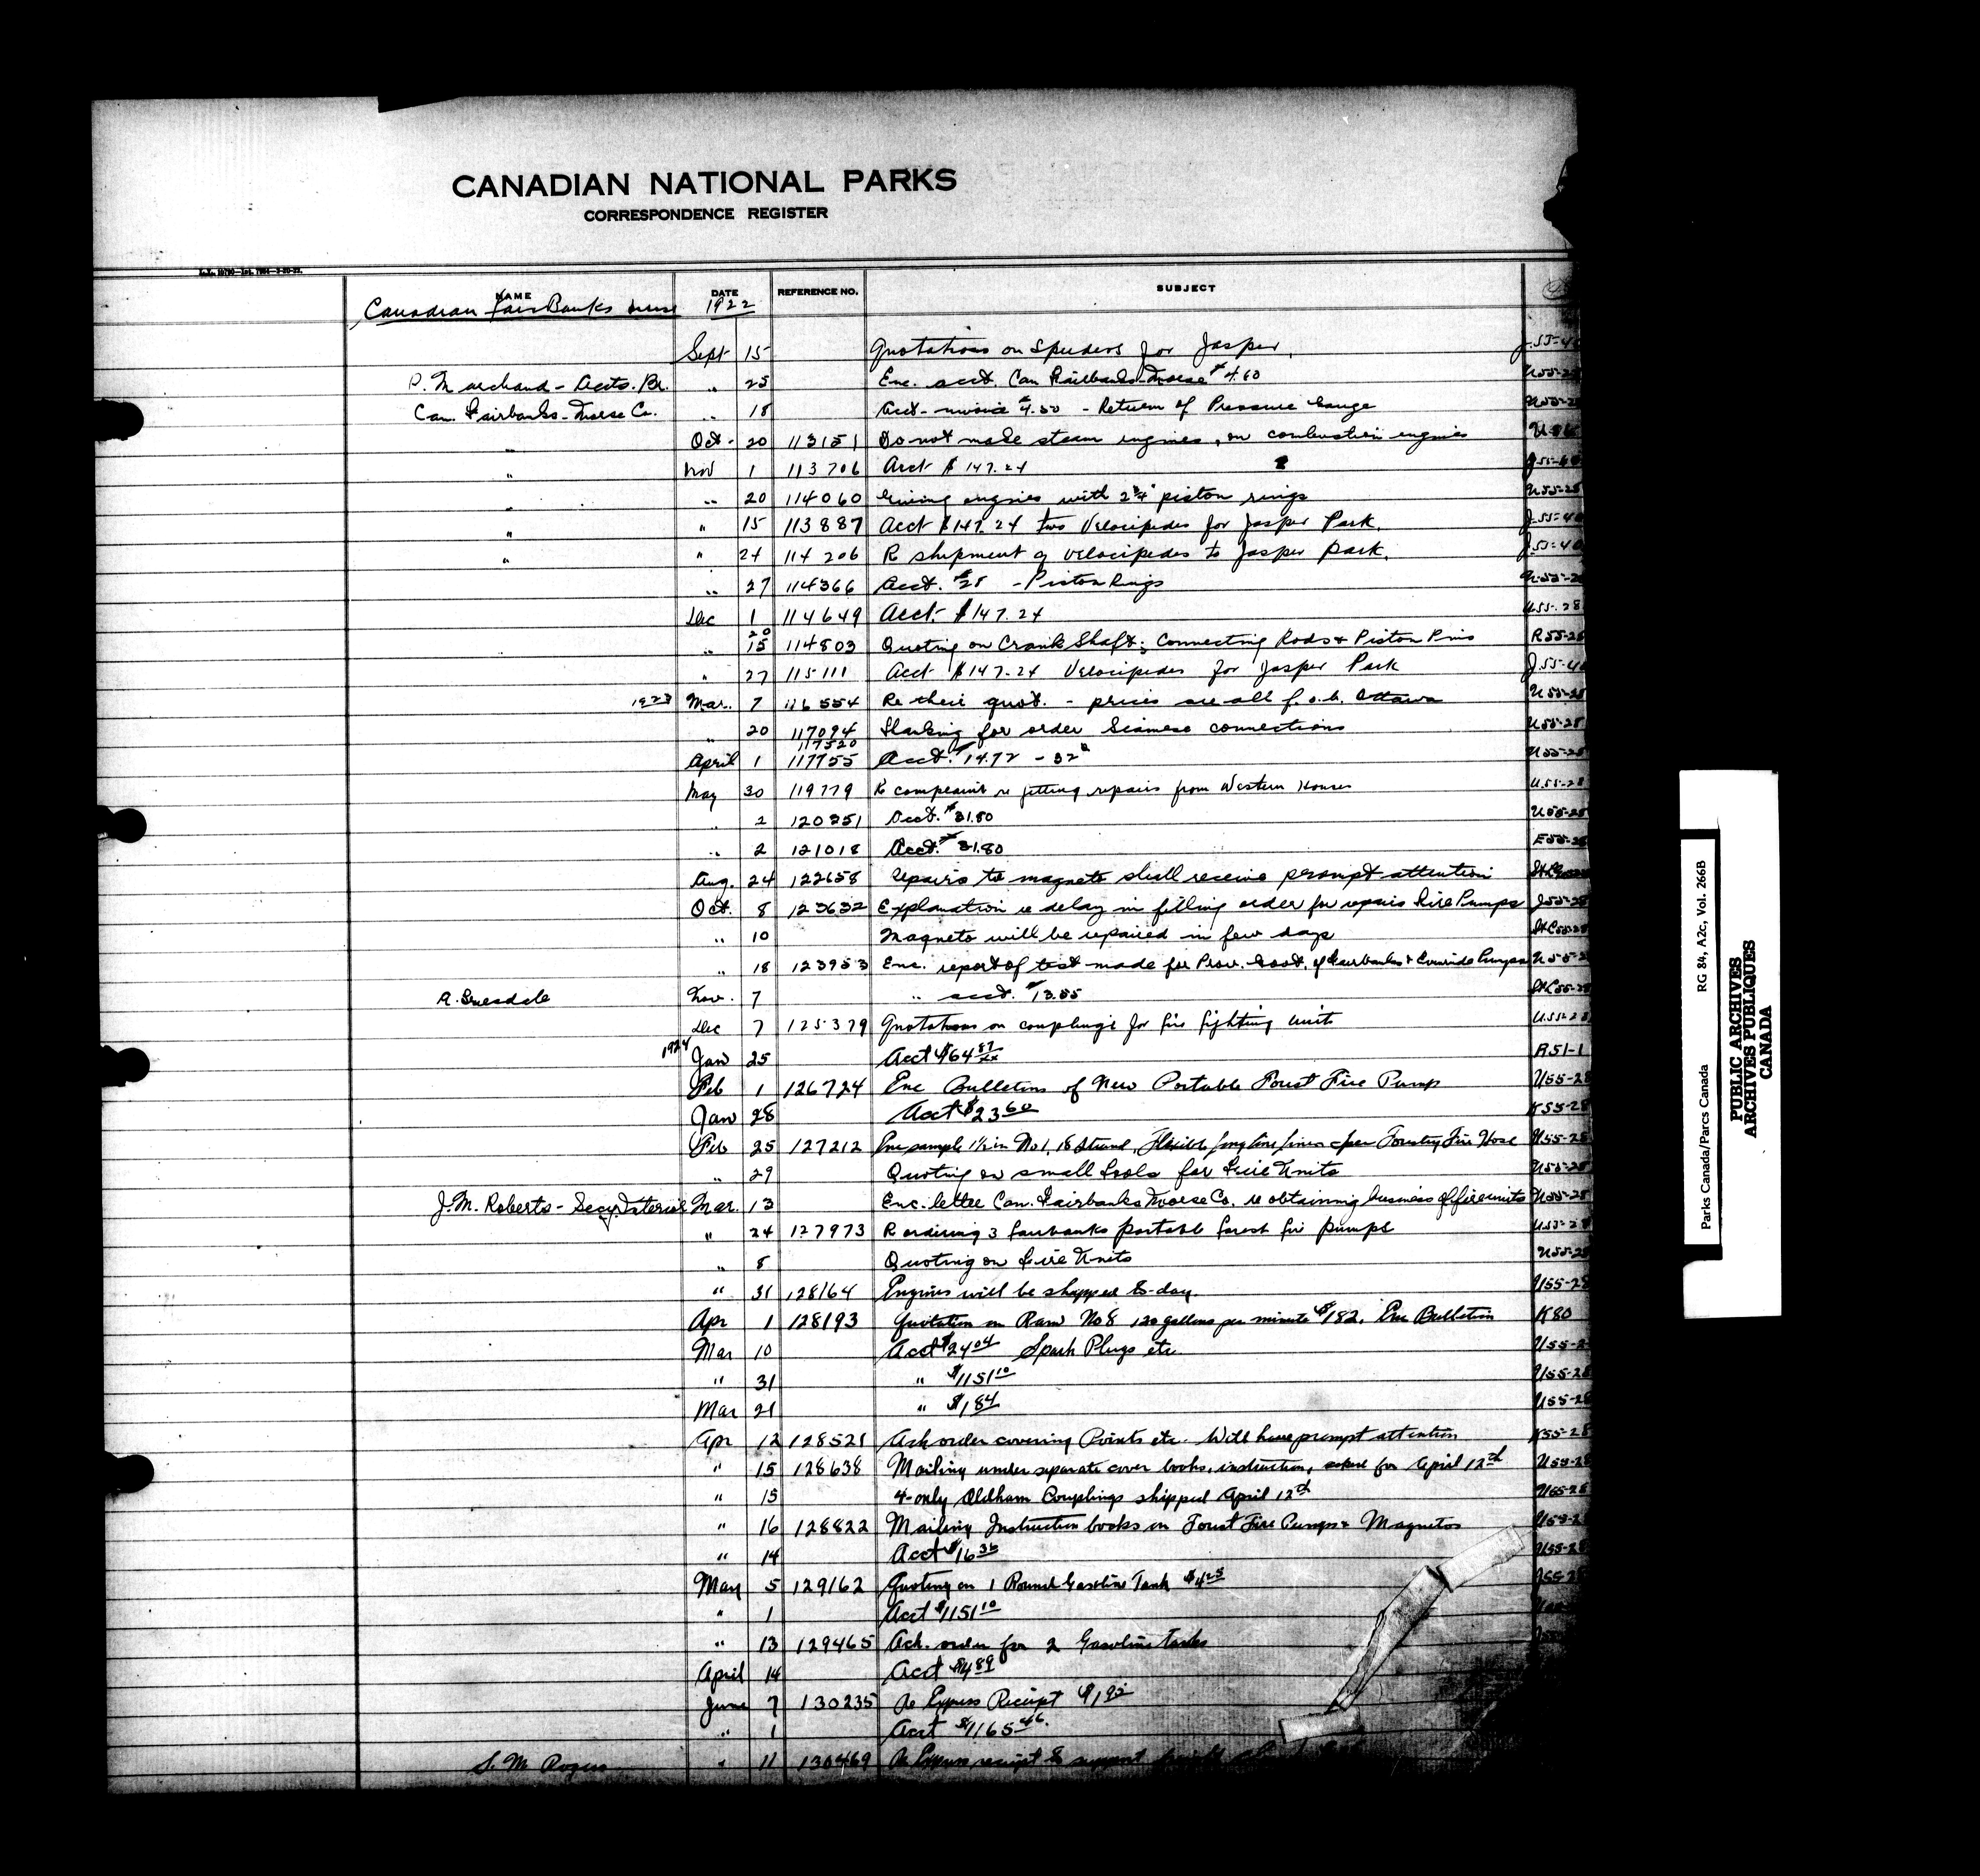 CANADIAN NATIONAL PARKS
CORRESPONDENCE REGISTER
NAME DATE REFERENCE NO. SUBJECT
Canadian FairBanks 1922
Sept 15 Quotations on Speeders for Jasper. J.55-4
P. Marchand - Accts. Br. " 25 Enc. acct. Can Fairbanks-Morse $4.60 U55-28
Can. Fairbanks-Morse Co. " 18 Acct - invoice $4.50 - Return of Pressure Gauge U55-28
" Oct - 20 113151 Do not made steam engines, on combustion engines
" Nov 1 113706 Acct $147.24
" " 20 114060 Giving engines with 2¾" piston rings U55-28
" " 15 113887 Acct $147.24 two Velocipedes for Jasper Park. J.55-40
" " 24 114206 R shipment of velocipedes to Jasper Park. J.55-40
" 27 114366 Acct. $28 - Piston Rings U-55-28
Dec 1 114649 Acct. $147.24 U55-28
20
" 15 114803 Quoting on Crank Shaft; Connecting Rods & Piston Pins R55-28
" 27 115111 Acct $147.24 Velocipedes for Jasper Park J.55-40
1923 Mar. 7 116554 Re their quot. - prices are all f.o.b. Ottawa U55-28
" 20 117094 Thanking for order Siamese connections U55-28
117520
April 1 117755 Acct. $14.72 - 32 U55-28
May 30 119779 R complaint re getting repairs from Western Houses U.55-28
" 2 120351 Acct. $31.80 U55-28
" 2 121018 Acct. $31.80 E55-28
Aug. 24 122658 repairs to magneto shall receive prompt attention
Oct. 8 123632 Explanation re delay in filling order for repairs Fire Pumps J55-28
" 10 Magneto will be repaired in few days St.C55-28
" 18 123953 Enc. report of test made for Prov. Govt. of Fairbanks & Evinrude Pumps U55-28
Nov. 7 " acct. $13.55 St.C55-28
Dec 7 125379 Quotations on couplings for fire fighting units U55-28
1924 Jan 25 Acct $64 87 R51-1
Feb 1 126724 Enc Bulletins of New Portable Forest Fire Pump U55-28
Jan 28 Acct $23 60 K55-28
Feb 25 127212 Enc sample 1½ in No 1, 18 strand, Flexible Forestry Fire Hose U55-28
" 29 Quoting on small tools for Fire Units U55-28
J.M. Roberts - Secy. Interior Mar. 13 Enc. letter Can. Fairbanks Morse Co. re obtaining business of fire units U55-28
" 24 127973 R ordering 3 fairbanks portable forest fire pumps U55-28
" 8 Quoting on Fire Units U55-28
" 31 128164 Engines will be shipped to-day. U55-28
Apr 1 128193 Quotation on Ram No 8 120 gallons per minute $182. Enc Bulletin K80
Mar 10 Acct $24 04 Spark Plugs etc U55-28
" 31 " $1151 10 U55-28
Mar 21 " $1 84 U55-28
Apr 12 128521 Ack order covering Points etc. Will have prompt attention K55-28
" 15 128638 Mailing under separate cover books, instruction, asked for April 12th U55-28
" 15 4-only Oldham Couplings shipped April 12th U55-28
" 16 128822 Mailing Instruction books on Forest Fire Pumps & Magnetos U55-28
" 14 Acct $16 36 U55-28
May 5 129162 Quoting on 1 Round Gasoline Tank $4 25
" 1 Acct $1151 10
" 13 129465 Ack. order for 2 Gasoline tanks
April 14 Acct $4 89
June 7 130235 Re Express Receipt $1 92
" 1 Acct $1165 46
S. M. Rogers " 11 130469 Re Express receipt to support
Parks Canada/Parcs Canada RG 84, A2c, Vol. 266B
PUBLIC ARCHIVES
ARCHIVES PUBLIQUES
CANADA